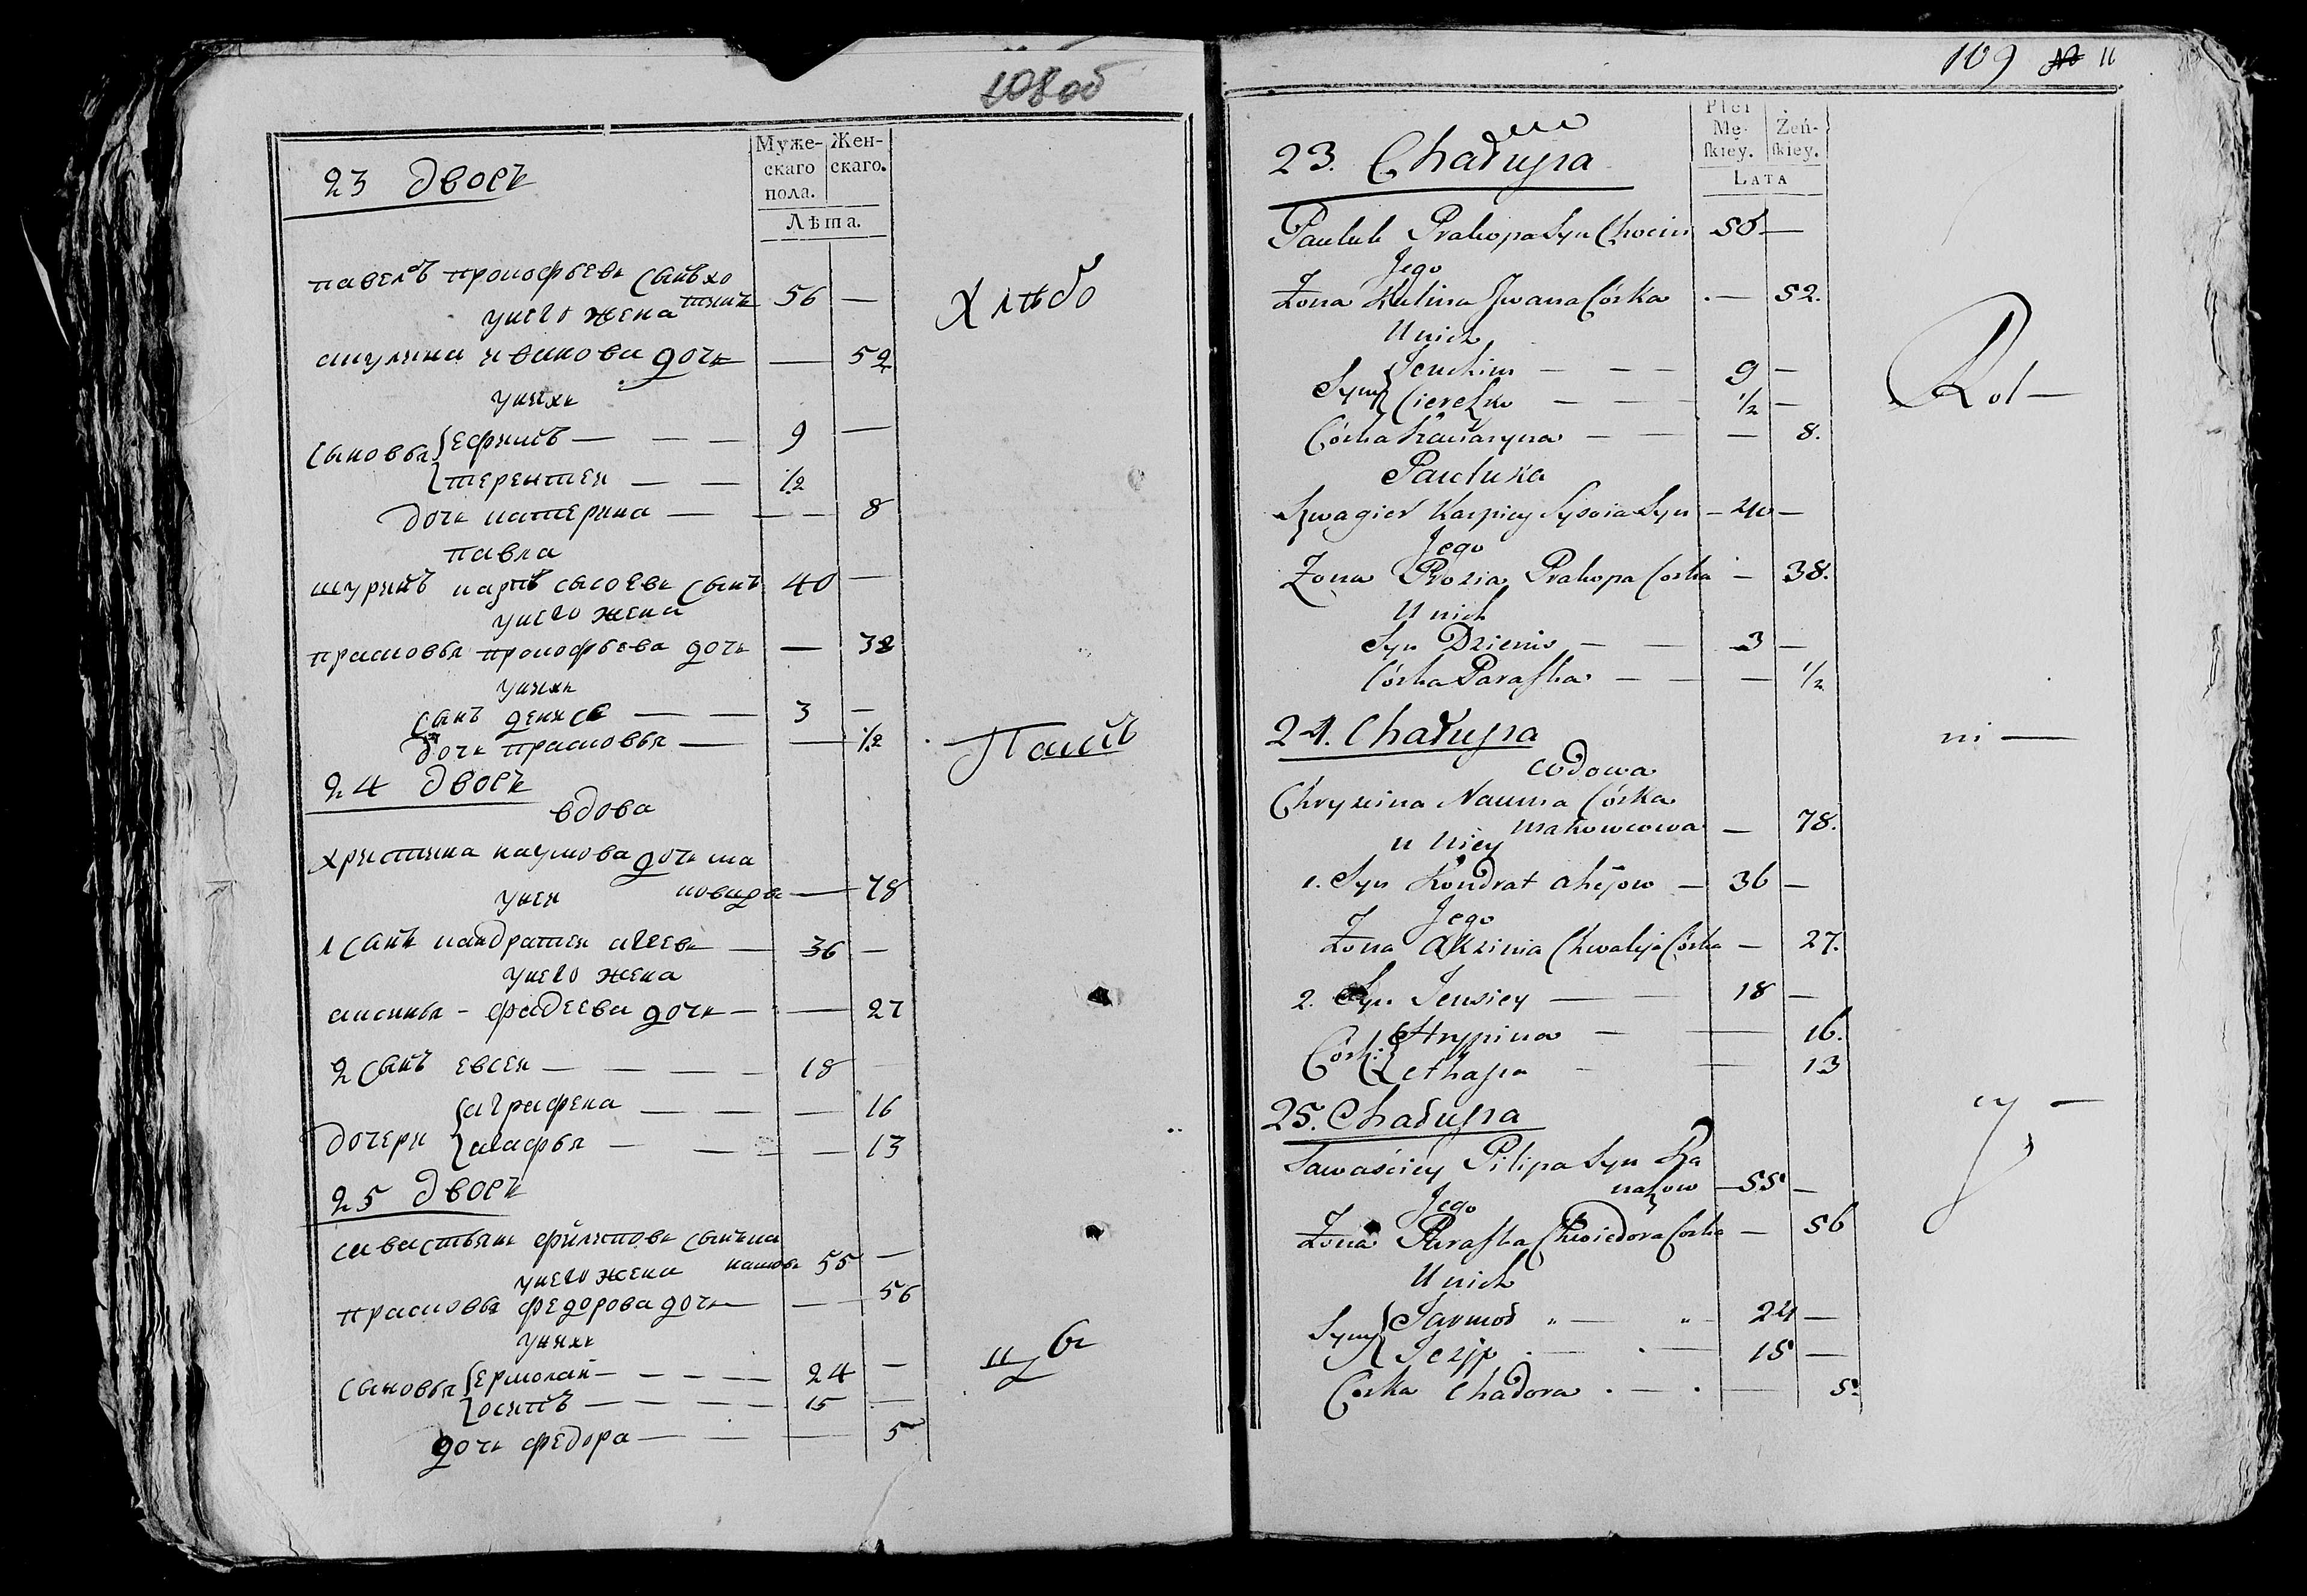 108 об
23 дворъ
Муже-
скаго
пола.
Жен-
скаго.
Лѣта.
павелъ прокофьевъ сынъ хо
тимъ 56 —
унего жена
акулина иванова дочь — 52
унихъ
сыновья ефимъ — — — 9 —
терентеи — — 1/2
дочь катерина — — — 8
павла
шуринъ карпъ сысоевъ сынъ 40 —
унего жена
прасковья прокофьева дочь — 38
унихъ
сынъ денисъ — — 3 —
дочь прасковья — — 1/2
24 дворъ
вдова
христина наумова дочь ма
ковцова — 78
унеи
1 сынъ кандратеи агеевъ — 36 —
унего жена
аксинья - фадеева дочь — — 27
2 сынъ евсеи — — — — 18 —
дочери аграфена — — — 16
агафья — — — — 13
25 дворъ
савастьянъ филиповъ сынъ ка
нашовъ 55 —
унего жена
прасковья федорова дочь — — 56
унихъ
сыновья ермолай — — — — 24 —
осипъ — — — — 15 —
дочь федора — — — 5
хлѣбо
Пашъ
цы
109
11
23. Chałupa
Płci
Mę-
ſkiey.
Żeń-
ſkiey.
LATA
Pauluk Prakopa Syn Chocim 56 —
Jego
Żona Kulina Jwana Córka . — 52.
U nich
Syny Jeuchim — — — 9 —
Cereszko — — — 1/2 —
Córka Kataryna — — — 8.
Pauluka
Szwagier Karpiey Sysoia Syn — 40 —
Jego
Żona Prozia Prakopa Corka — 38.
U nich
Syn Dzienis — — 3 —
Córka Paraska — — — 1/2
24. Chałupa
wdowa
Chryzcina Nauma Córka
makowcowa — 78.
u niey
1. Syn Kondrat ahejow — 36 —
Jego
Żona Akzinia Chwaleja Córka — 27.
2. Syn Jeusiey — — 18 —
Córki Ahrypina — — 16.
Ahapa — — 13
25. Chałupa
Sawaściey Pilipa Syn Ka
naszow — 55 —
Jego
Żona Paraska Chwiedora Corka — 56
U nich
Syny Jarmoł „ — „ 24 —
Jezip . — . — 15 —
Corka Chadora . — . — 5.
Rol —
ni —
cy —